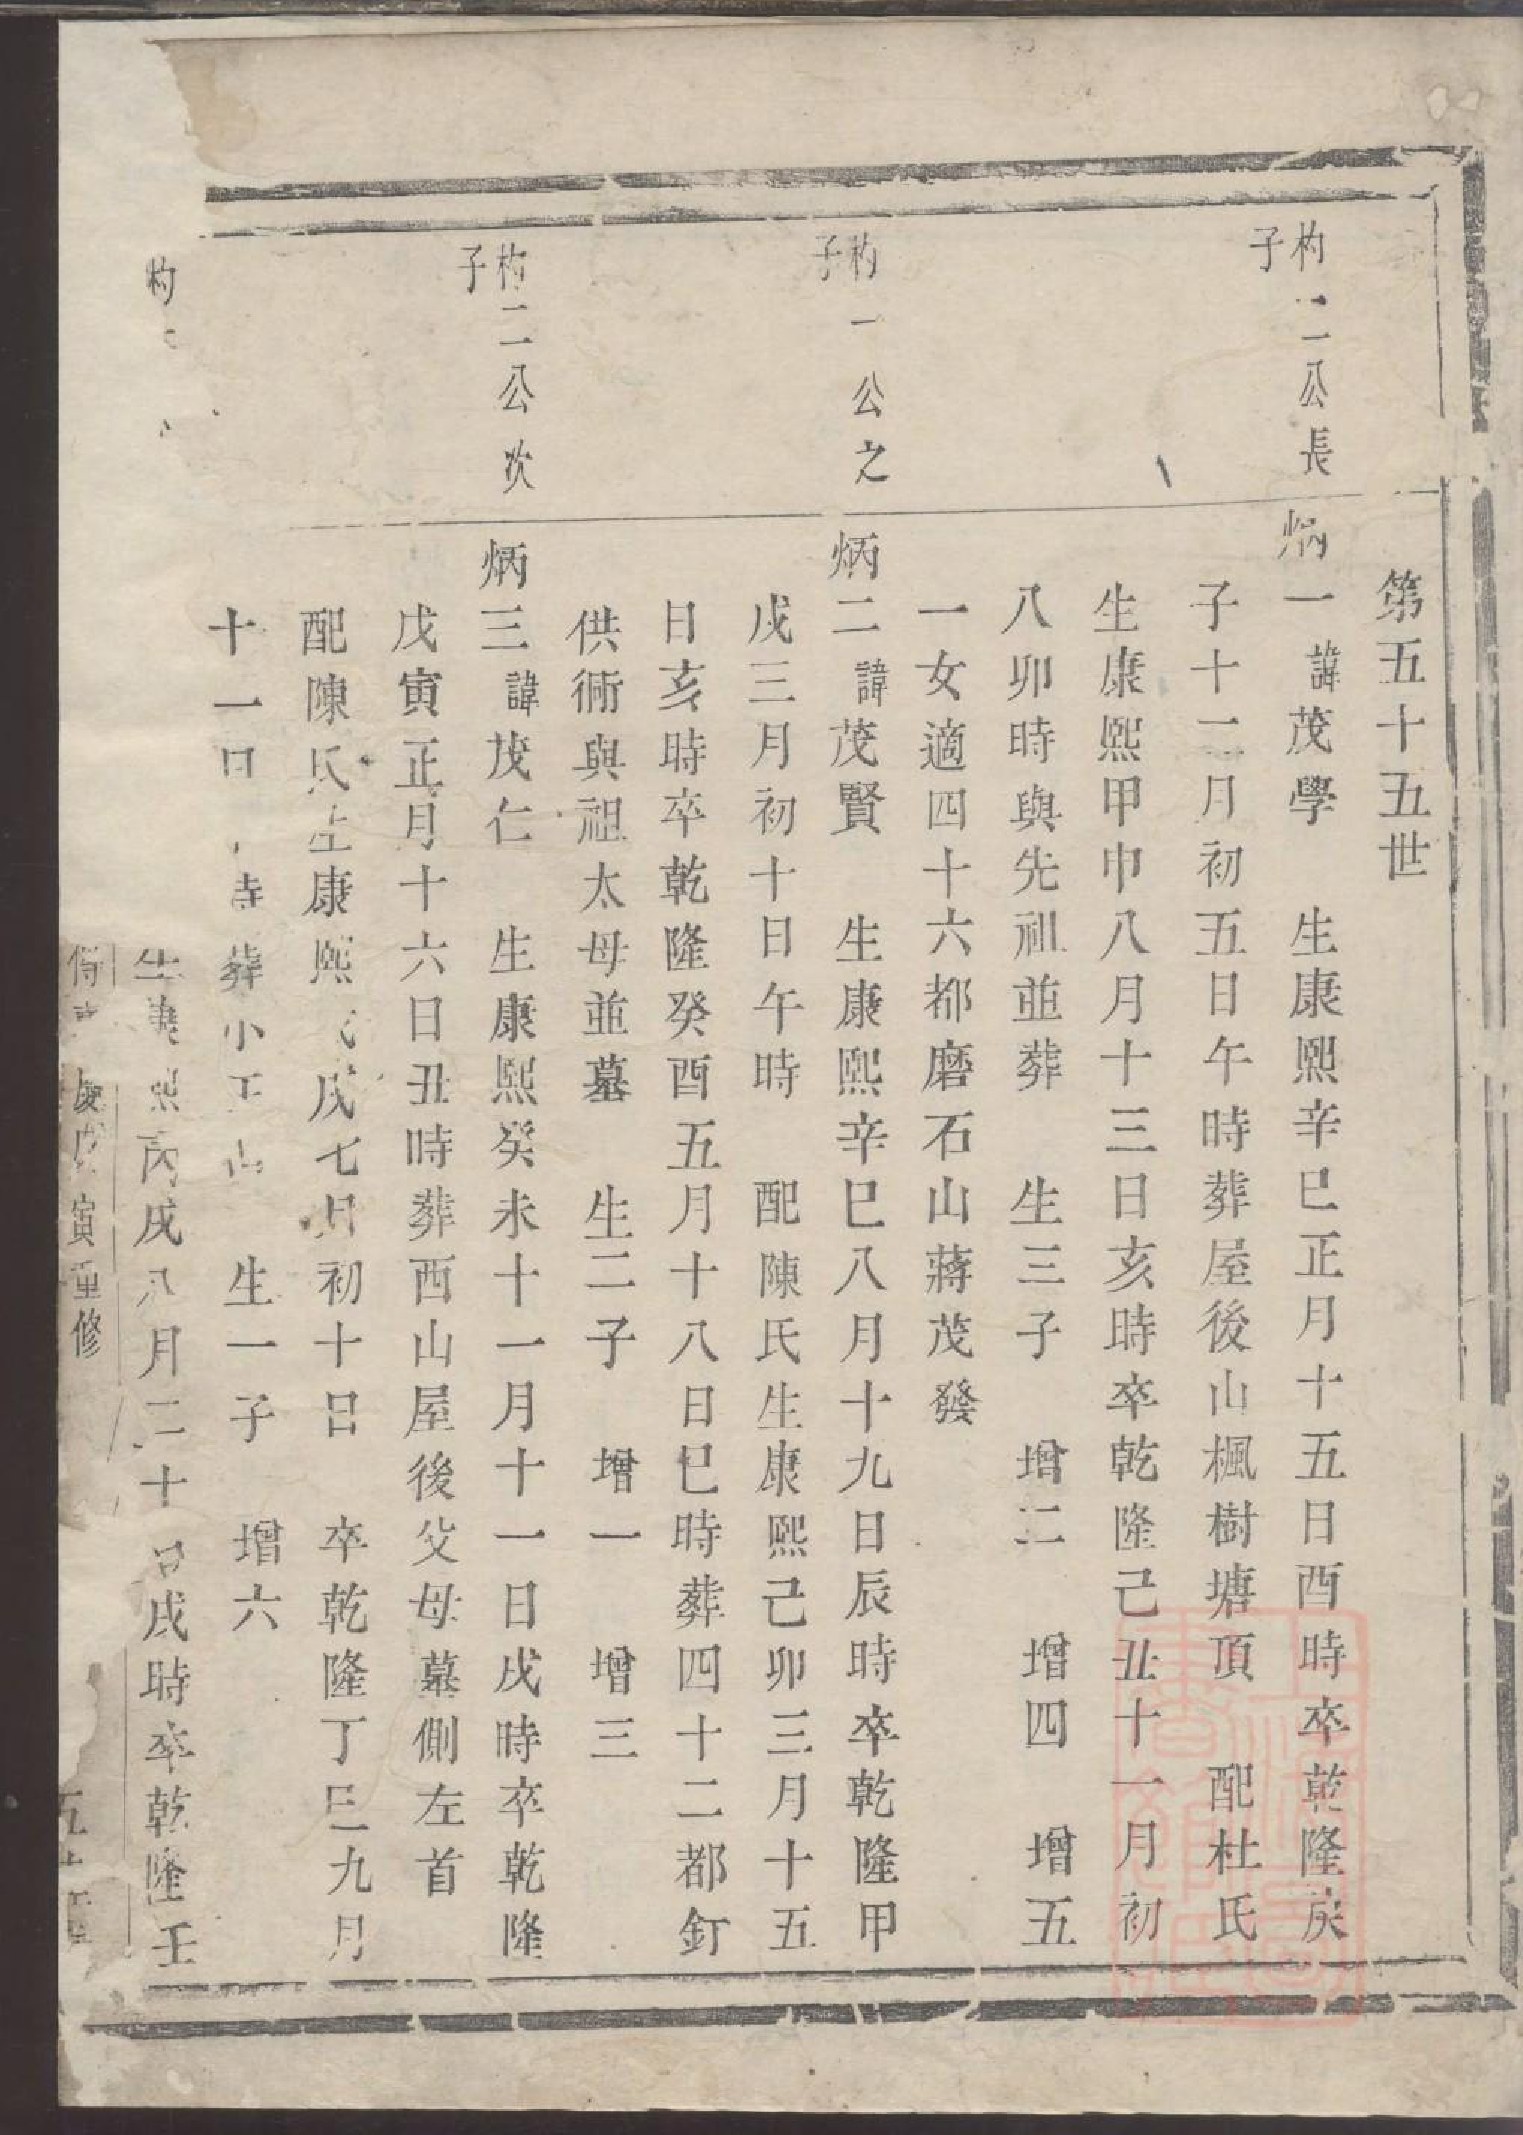 第五十五世
杓二公長
子
炳一諱茂學 生康熙辛巳正月十五日酉時卒乾隆戾
子十二月初五日午時葬屋後山楓樹塘頂 配杜氏
生康熙甲申八月十三日亥時卒乾隆己丑十一月初
八卯時與先祖並葬 生三子 增二 增四 增五
一女適四十六都磨石山蔣茂發
杓一公之
子
炳二諱茂賢 生康熙辛巳八月十九日辰時卒乾隆甲
戌三月初十日午時 配陳氏生康熙己卯三月十五
日亥時卒乾隆癸酉五月十八日巳時葬四十二都釘
供衕與祖太母並墓 生二子 增一 增三
杓二公次
子
炳三諱茂仁 生康熙癸未十一月十一日戌時卒乾隆
戊寅正月十六日丑時葬西山屋後父母墓側左首
配陳氏生康熙戊戌七月初十日 卒乾隆丁巳九月
十一日 時葬小 山 生一子 增六
杓
生 熙丙戌八月二十日戌時卒乾隆壬
寅重修
五十